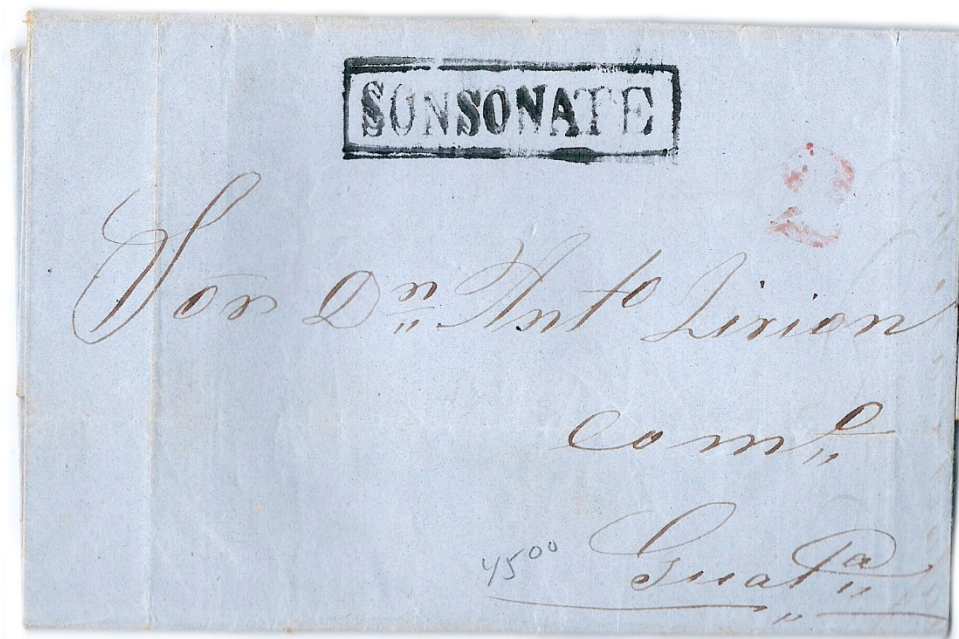 SONSONATE
2
Sor Dn Anto Lirion
Como
45 00
Guata